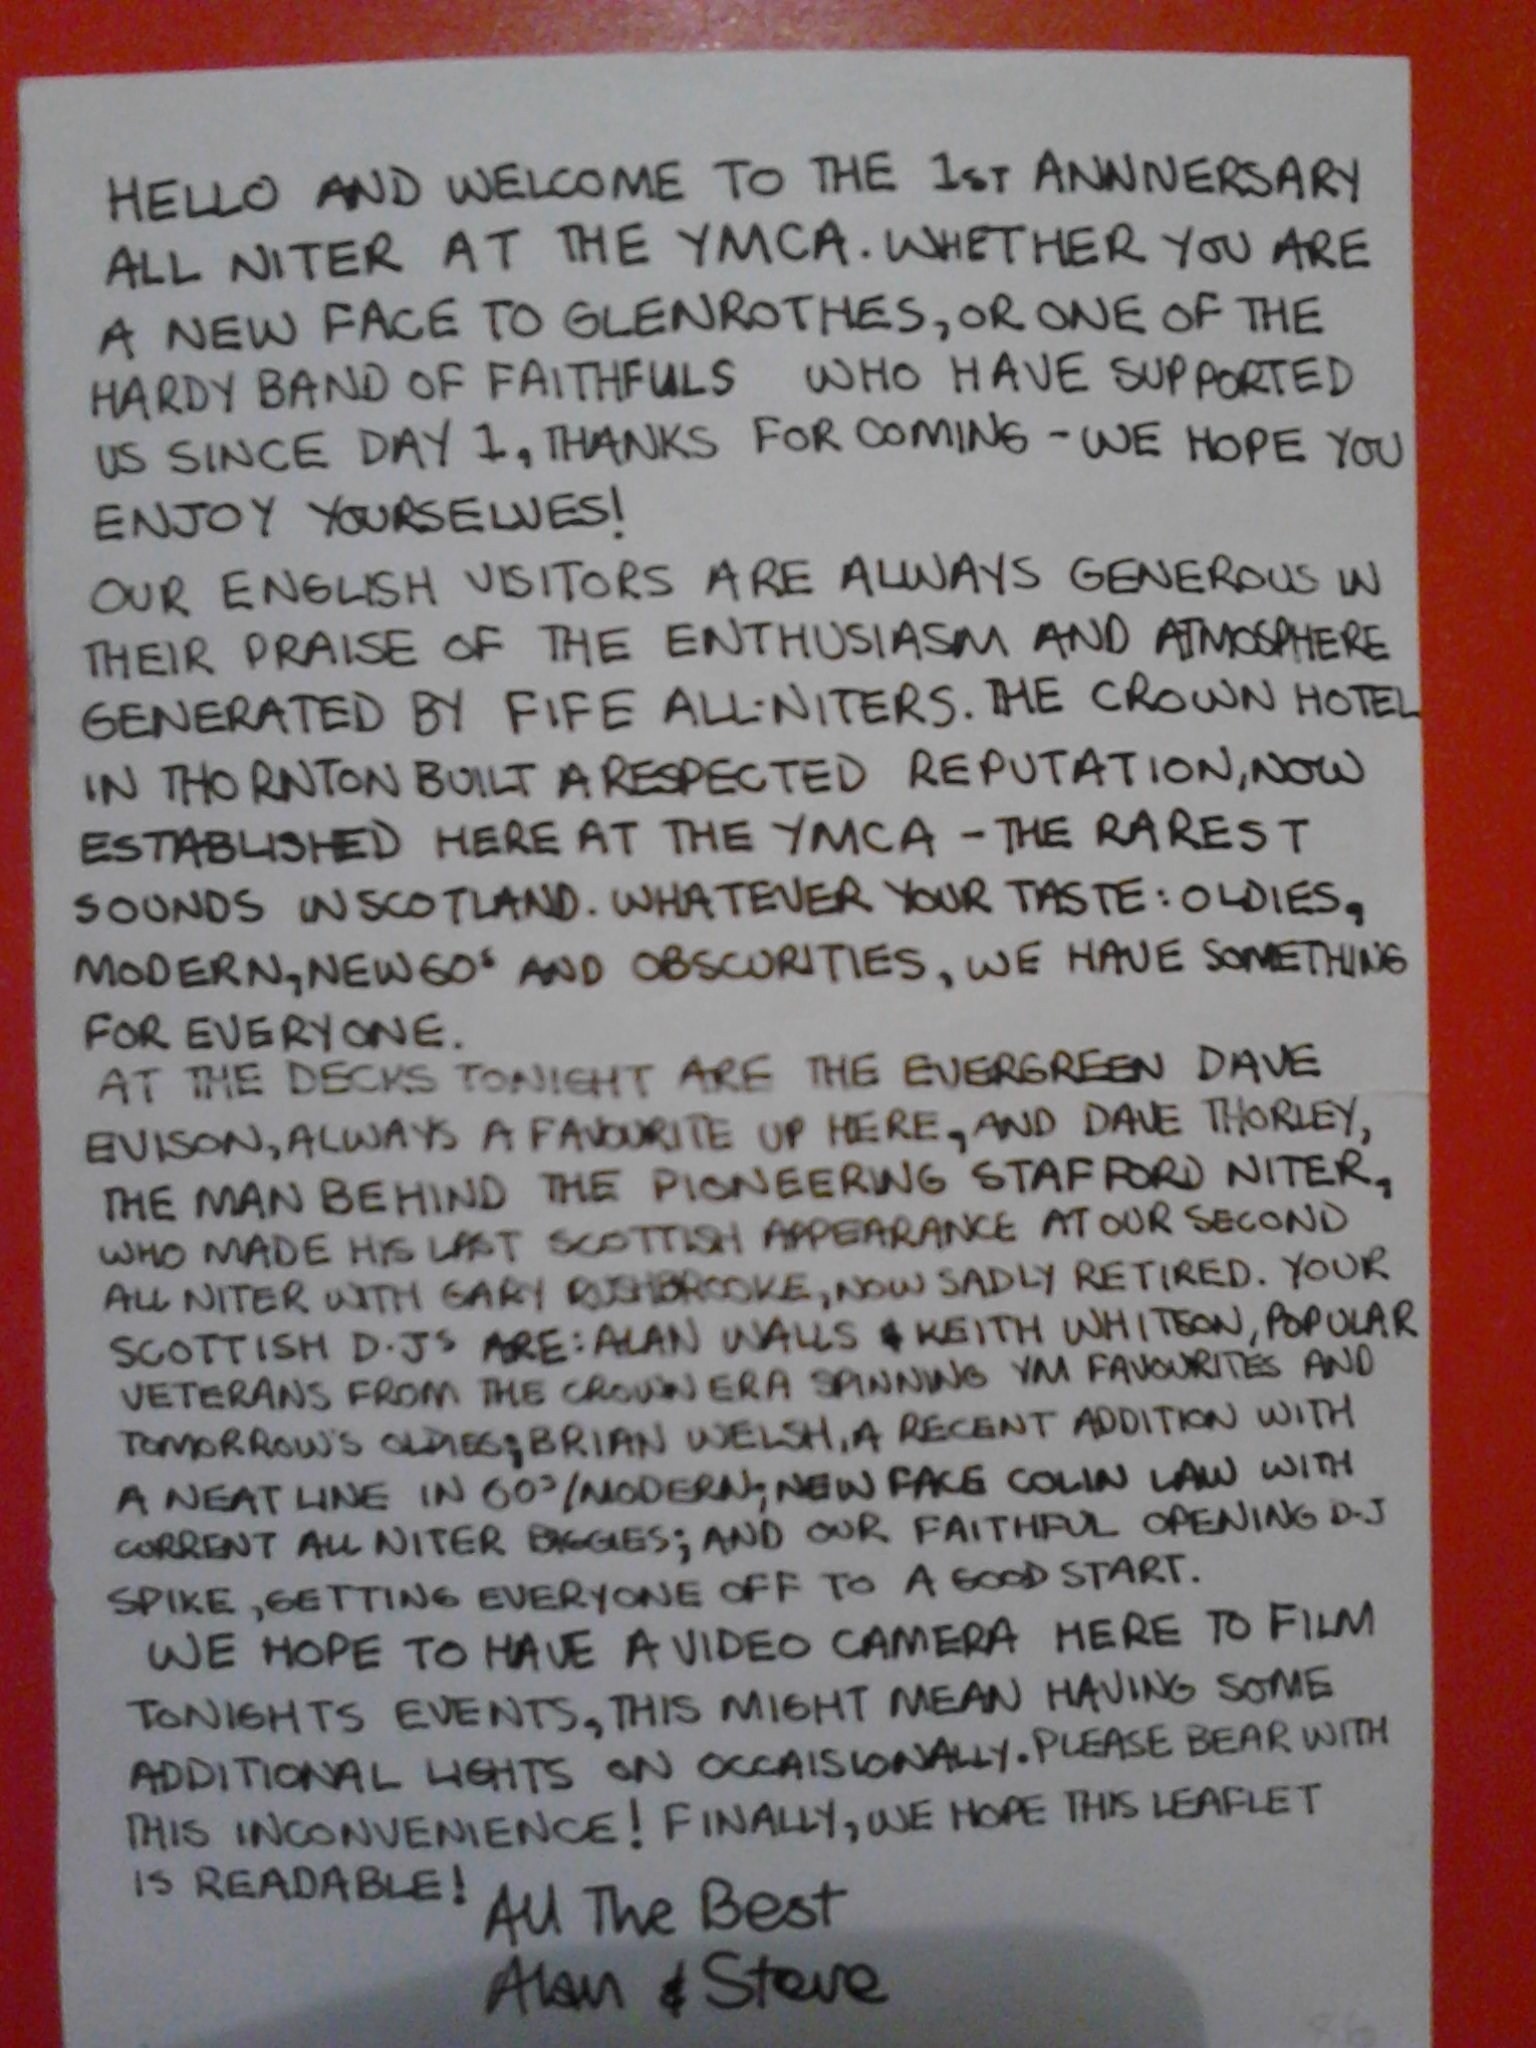 HELLO AND WELCOME TO THE 1ST ANNNERSARY
ALL NITER AT THE YMCA. WHETHER YOU ARE
A NEW FACE TO GLENROTHES, OR ONE OF THE
HARDY BAND OF FAITHFULS WHO HAVE SUPPORTED
US SINCE DAY 1, THANKS FOR COMING - WE HOPE YOU
ENJOY YOURSELVES!
OUR ENGLISH VISITORS ARE ALWAYS GENEROUS IN
THEIR PRAISE OF THE ENTHUSIASM AND ATMOSPHERE
GENERATED BY FIFE ALL-NITERS. THE CROWN HOTEL
IN THORNTON BUILT A RESPECTED REPUTATION, NOW
ESTABLISHED HERE AT THE YMCA - THE RAREST
SOUNDS IN SCOTLAND. WHATEVER YOUR TASTE: OLDIES,
MODERN, NEW 60s AND OBSCURITIES, WE HAVE SOMETHING
FOR EVERYONE.
AT THE DECKS TONIGHT ARE THE EVERGREEN DAVE
EVISON, ALWAYS A FAVOURITE UP HERE, AND DAVE THORLEY,
THE MAN BEHIND THE PIONEERING STAFFORD NITER,
WHO MADE HIS LAST SCOTTISH APPEARANCE AT OUR SECOND
ALL NITER WITH GARY RUSHBROOKE, NOW SADLY RETIRED. YOUR
SCOTTISH D.Js ARE: ALAN WALLS & KEITH WHITSON, POPULAR
VETERANS FROM THE CROWN ERA SPINNING YM FAVOURITES AND
TOMORROW'S OLDIES; BRIAN WELSH, A RECENT ADDITION WITH
A NEAT LINE IN 60s/MODERN; NEW FACE COLIN LAW WITH
CURRENT ALL NITER BIGGIES; AND OUR FAITHFUL OPENING D.J
SPIKE, GETTING EVERYONE OFF TO A GOOD START.
WE HOPE TO HAVE A VIDEO CAMERA HERE TO FILM
TONIGHTS EVENTS, THIS MIGHT MEAN HAVING SOME
ADDITIONAL LIGHTS ON OCCAISIONALLY. PLEASE BEAR WITH
THIS INCONVENIENCE! FINALLY, WE HOPE THIS LEAFLET
IS READABLE!
All The Best
Alan & Steve